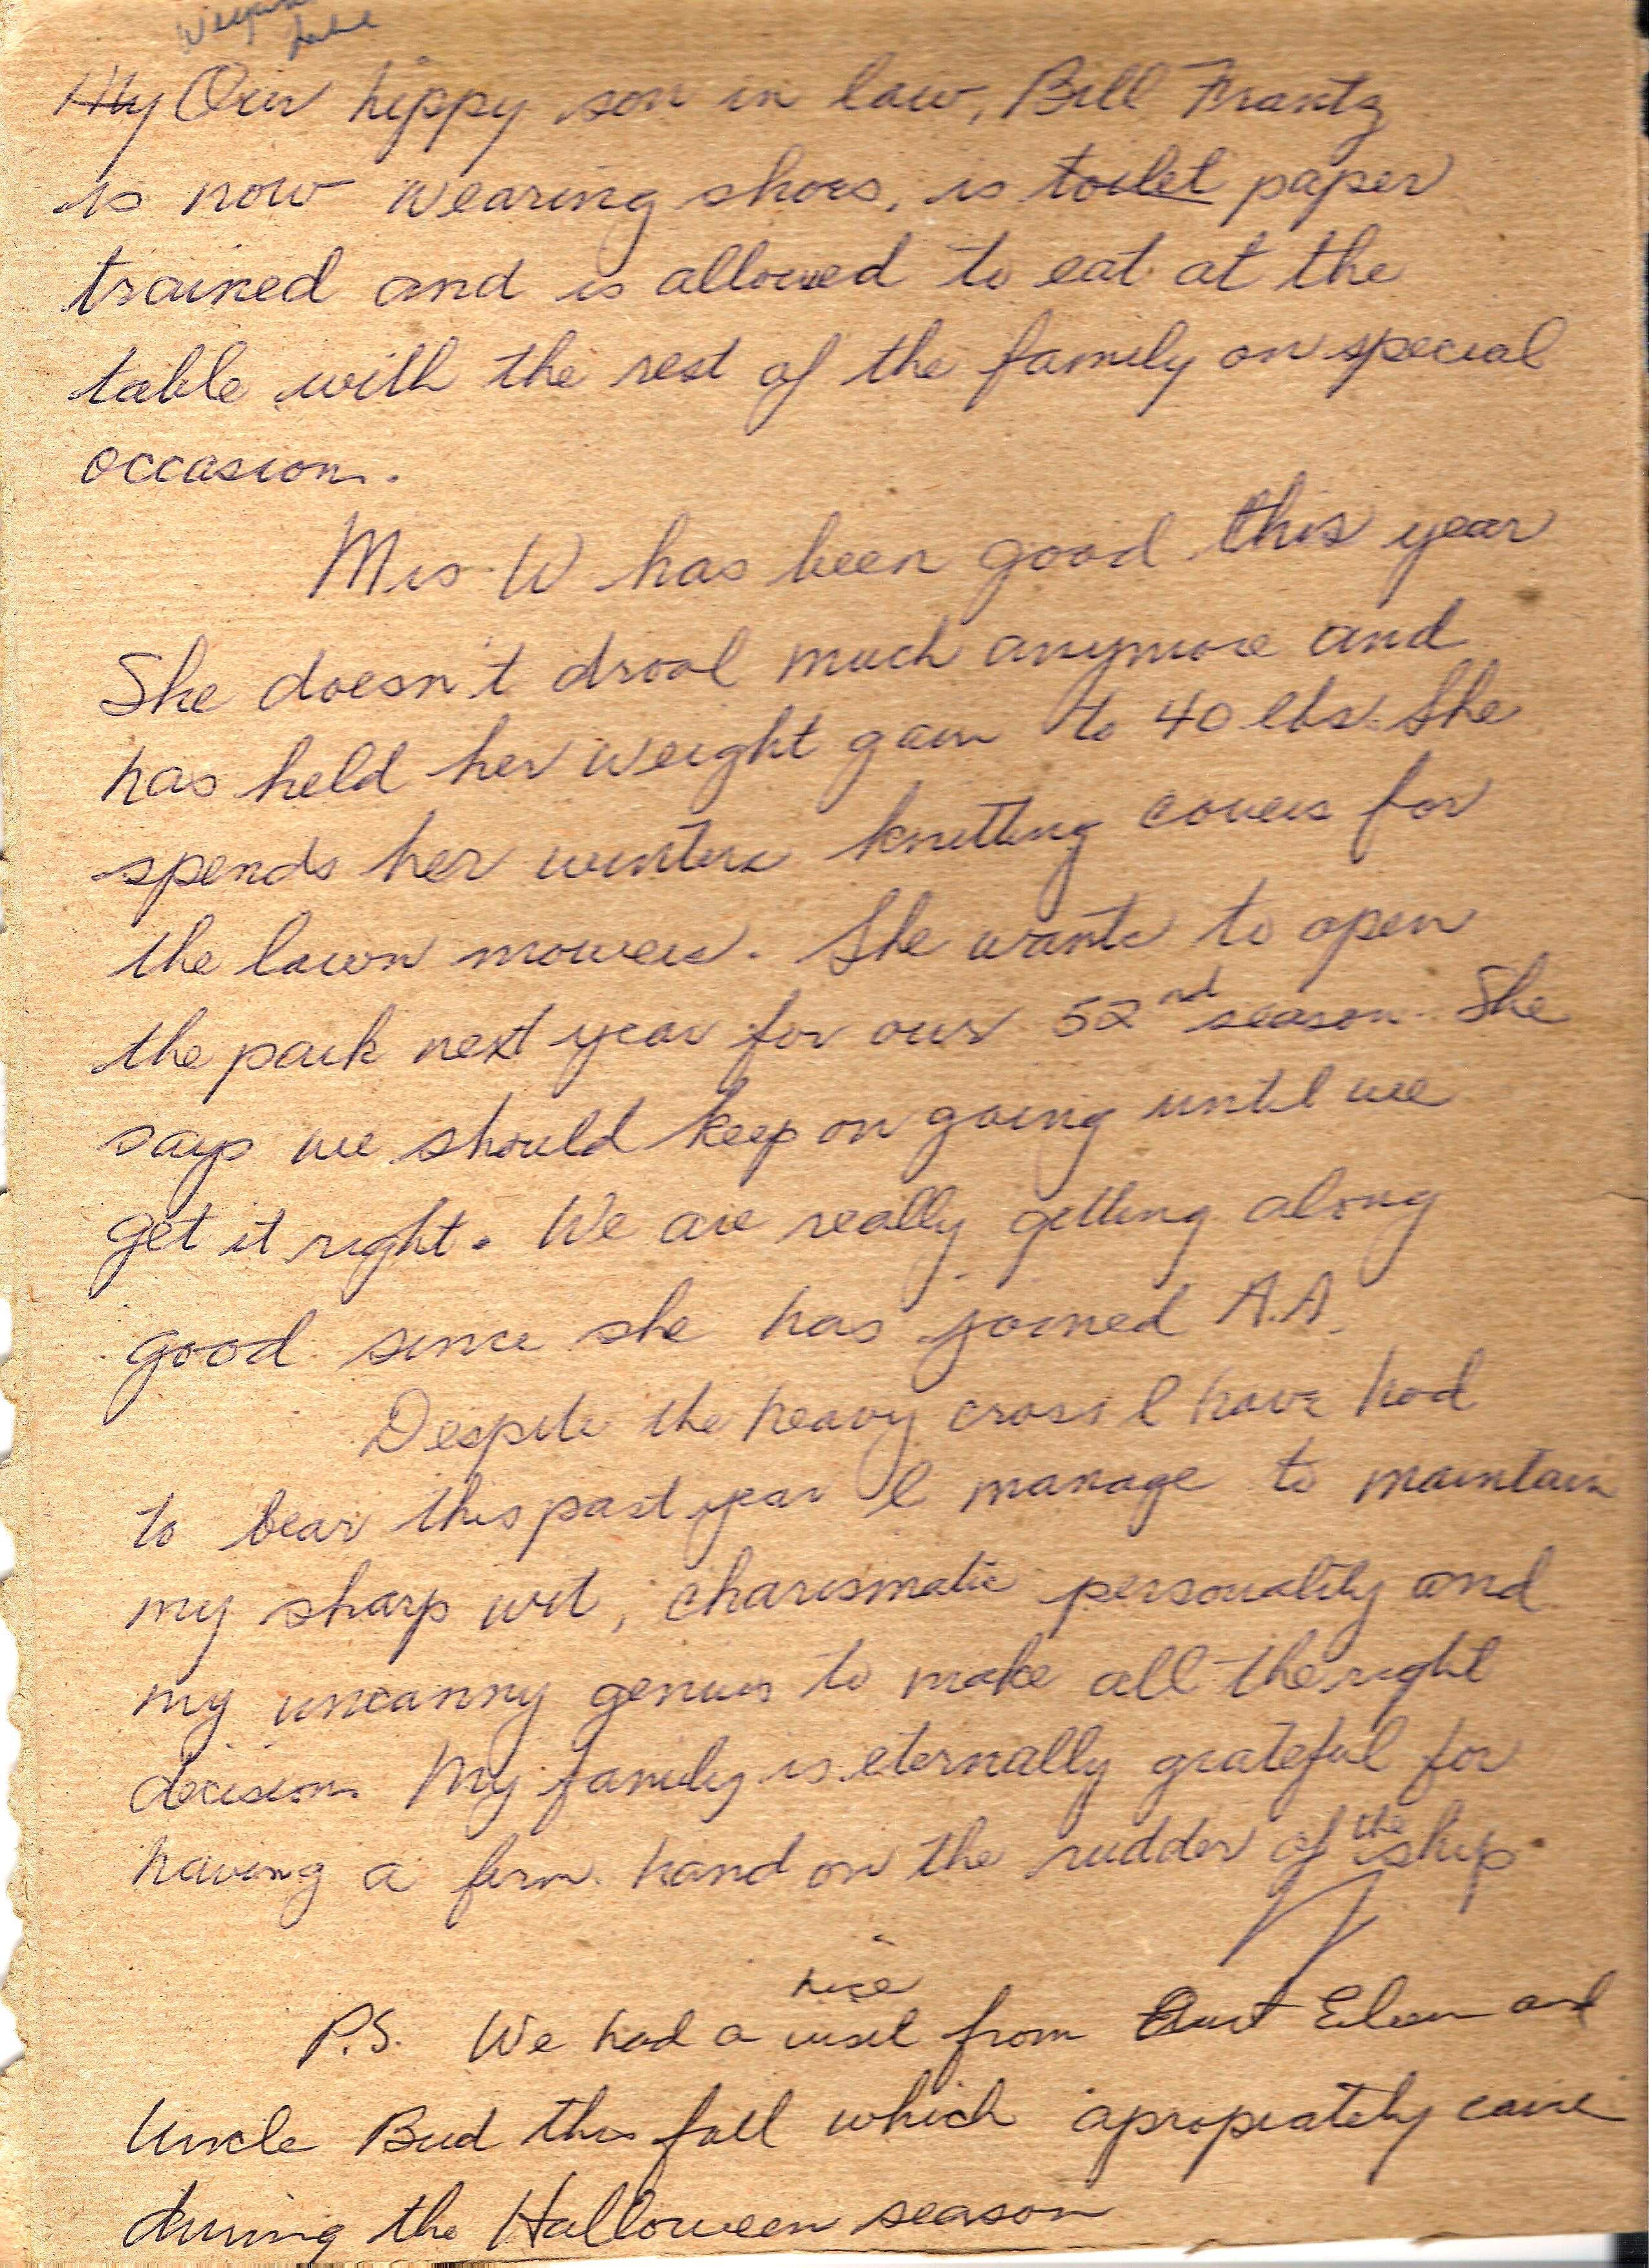 My Our hippy son in law, Bill Frantz
is now wearing shoes, is toilet paper
trained and is allowed to eat at the
table with the rest of the family on special
occasion.
Mrs W has been good this year
She doesn't drool much anymore and
has held her weight gain to 40 lbs. She
spends her winters knitting covers for
the lawn mowers. She wants to open
the park next year for our 52nd season. She
says we should keep on going until we
get it right. We are really getting along
good since she has joined A.A.
Despite the heavy cross I have had
to bear this past year I manage to maintain
my sharp wit, charismatic personality and
my uncanny genius to make all the right
decision. My family is eternally grateful for
having a firm hand on the rudder of the ship.
P.S. We had a nice visit from Aunt Eileen and
Uncle Bud this fall which apropiately came
during the Halloween season